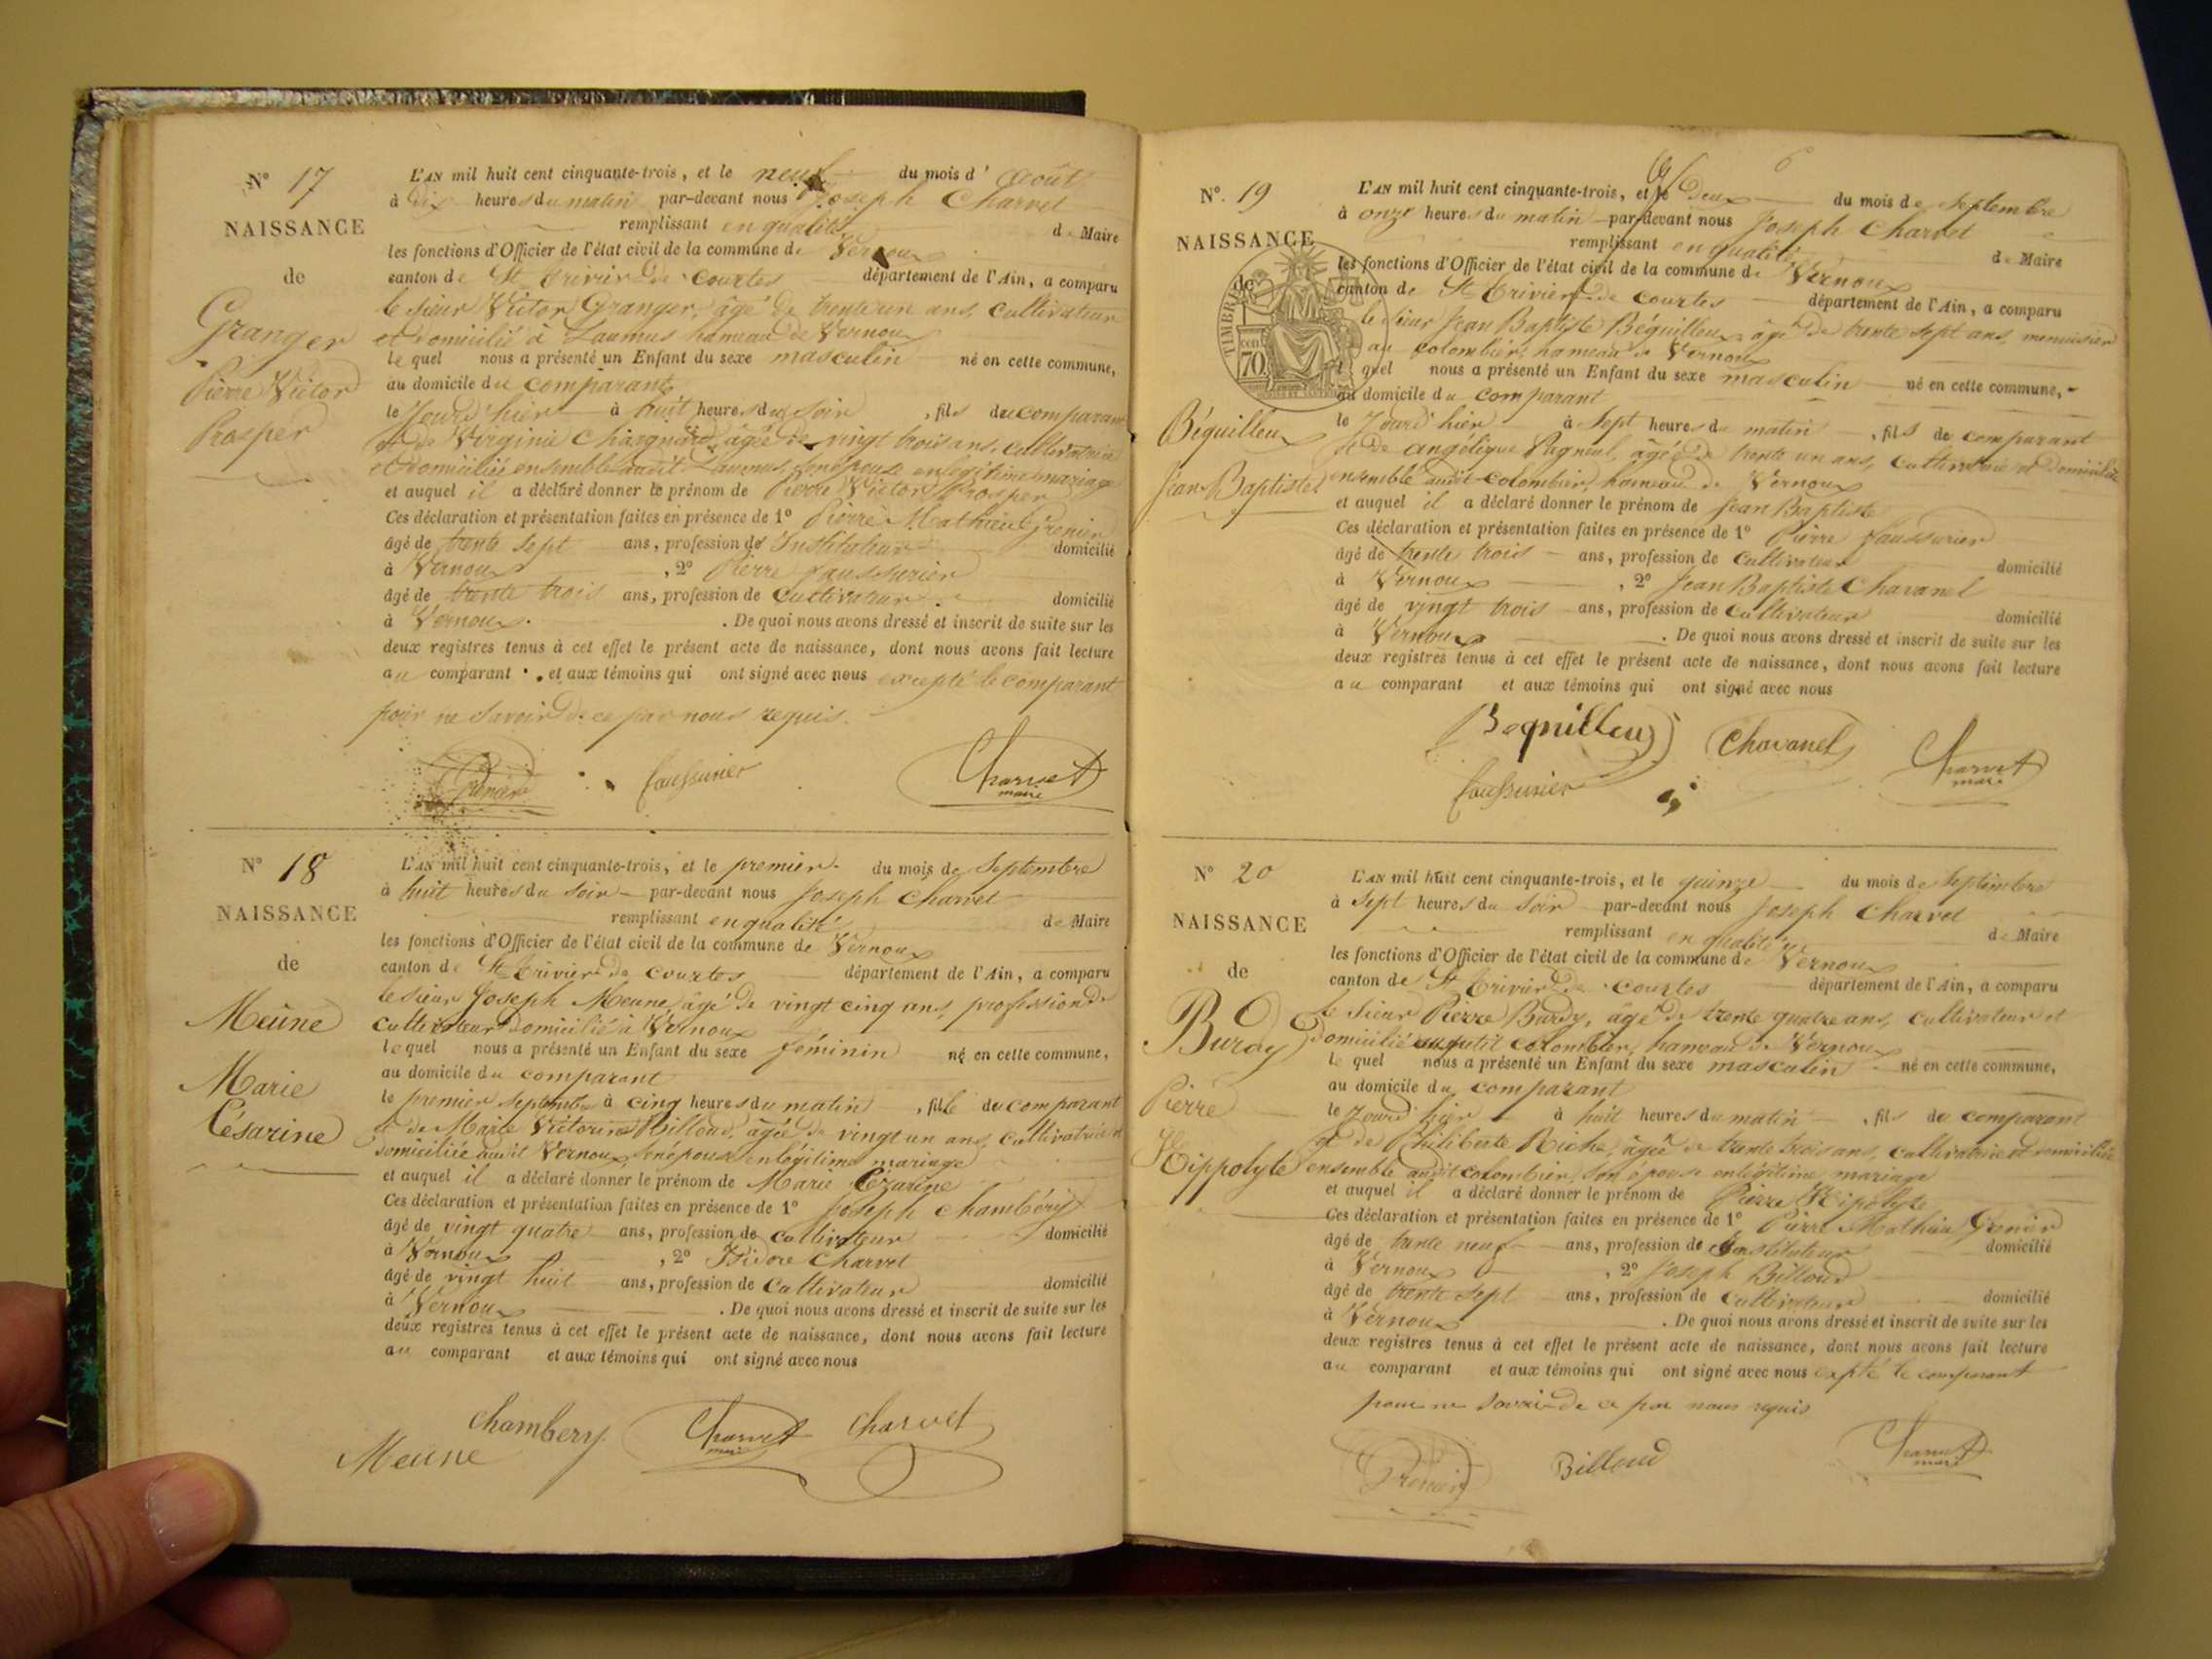 N° 17
NAISSANCE
de
Granger
Pierre Victor
Prosper
L'AN mil huit cent cinquante-trois, et le neuf du mois d'Août
à dix heures du matin par-devant nous Joseph Charvet
remplissant en qualité de Maire
les fonctions d'Officier de l'état civil de la commune de Vernoux
canton de St Trivier de Courtes département de l'Ain, a comparu
le sieur Victor Granger, âgé de trente un ans, cultivateur
et domicilié à Laumus hameau de Vernoux
le quel nous a présenté un Enfant du sexe masculin né en cette commune,
au domicile du comparant
le jourd'hier à huit heures du soir, fils du comparant
et de Virginie âgée de vingt trois ans, cultivatrice
et domiciliée ensemble audit Laumus, son épouse en légitime mariage
et auquel il a déclaré donner le prénom de Pierre Victor Prosper
Ces déclaration et présentation faites en présence de 1° Pierre Mathieu Grenier
âgé de trente sept ans, profession de Instituteur domicilié
à Vernoux, 2° Pierre Faussurier
âgé de trente trois ans, profession de Cultivateur domicilié
à Vernoux. De quoi nous avons dressé et inscrit de suite sur les
deux registres tenus à cet effet le présent acte de naissance, dont nous avons fait lecture
au comparant et aux témoins qui ont signé avec nous excepté le comparant
pour ne savoir de ce par nous requis.
Grenier Faussurier Charvet
maire
N° 18
NAISSANCE
de
Meune
Marie
Césarine
L'AN mil huit cent cinquante-trois, et le premier du mois de Septembre
à huit heures du soir par-devant nous Joseph Charvet
remplissant en qualité de Maire
les fonctions d'Officier de l'état civil de la commune de Vernoux
canton de St Trivier de Courtes département de l'Ain, a comparu
le sieur Joseph Meune âgé de vingt cinq ans, profession de
cultivateur domicilié à Vernoux
lequel nous a présenté un Enfant du sexe féminin né en cette commune,
au domicile du comparant
le premier Septembre à cinq heures du matin, fille du comparant
et de Marie Victorine Billoud, âgée de vingt un ans, cultivatrice et
domiciliée audit Vernoux, son épouse en légitime mariage
et auquel il a déclaré donner le prénom de Marie Cézarine
Ces déclaration et présentation faites en présence de 1° Joseph Chambéry
âgé de vingt quatre ans, profession de cultivateur domicilié
à Vernoux, 2° Isidore Charvet
âgé de vingt huit ans, profession de Cultivateur domicilié
à Vernoux. De quoi nous avons dressé et inscrit de suite sur les
deux registres tenus à cet effet le présent acte de naissance, dont nous avons fait lecture
au comparant et aux témoins qui ont signé avec nous
Chambery Charvet Charvet
maire
Meune
6
N°. 19
NAISSANCE
de
TIMBRE
70
Béguilleux
Jean Baptiste
L'AN mil huit cent cinquante-trois, et le deux du mois de Septembre
à onze heures du matin par-devant nous Joseph Charvet
remplissant en qualité de Maire
les fonctions d'Officier de l'état civil de la commune de Vernoux
canton de St Trivier de Courtes département de l'Ain, a comparu
le sieur Jean Baptiste Béguilleux âgé de trente sept ans, menuisier
au colombier, hameau de Vernoux
lequel nous a présenté un Enfant du sexe masculin né en cette commune,
au domicile du comparant
le jourd'hier à Sept heures du matin, fils du comparant
et de angélique Pagneul, âgée de trente un ans, cultivatrice et domiciliée
ensemble audit colombier, hameau de Vernoux
et auquel il a déclaré donner le prénom de Jean Baptiste
Ces déclaration et présentation faites en présence de 1° Pierre Faussurier
âgé de trente trois ans, profession de Cultivateur domicilié
à Vernoux, 2° Jean Baptiste Chavanel
âgé de vingt trois ans, profession de Cultivateur domicilié
à Vernoux. De quoi nous avons dressé et inscrit de suite sur les
deux registres tenus à cet effet le présent acte de naissance, dont nous avons fait lecture
au comparant et aux témoins qui ont signé avec nous
Beguilleux Chavanel Charvet
maire
Faussurier
N° 20
NAISSANCE
de
Burdy
Pierre
Hippolyte
L'AN mil huit cent cinquante-trois, et le quinze du mois de Septembre
à Sept heures du soir par-devant nous Joseph Charvet
remplissant en qualité de Maire
les fonctions d'Officier de l'état civil de la commune de Vernoux
canton de St Trivier de Courtes département de l'Ain, a comparu
le Sieur Pierre Burdy, âgé de trente quatre ans, cultivateur et
domicilié au petit colombier, hameau de Vernoux
le quel nous a présenté un Enfant du sexe masculin né en cette commune,
au domicile du comparant
le jourd'hier à huit heures du matin, fils du comparant
et de Philiberte Riche, âgée de trente trois ans, cultivatrice et domiciliée
ensemble audit colombier, son épouse en légitime mariage
et auquel il a déclaré donner le prénom de Pierre Hipolyte
Ces déclaration et présentation faites en présence de 1° Pierre Mathieu Grenier
âgé de trente neuf ans, profession de Instituteur domicilié
à Vernoux, 2° Joseph Billoud
âgé de trente sept ans, profession de Cultivateur domicilié
à Vernoux. De quoi nous avons dressé et inscrit de suite sur les
deux registres tenus à cet effet le présent acte de naissance, dont nous avons fait lecture
au comparant et aux témoins qui ont signé avec nous expté le comparant
pour ne savoir de ce par nous requis
Grenier Billoud Charvet
maire